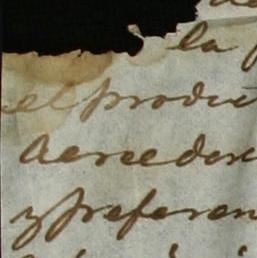 la
el produ
Acreedor
y preferen